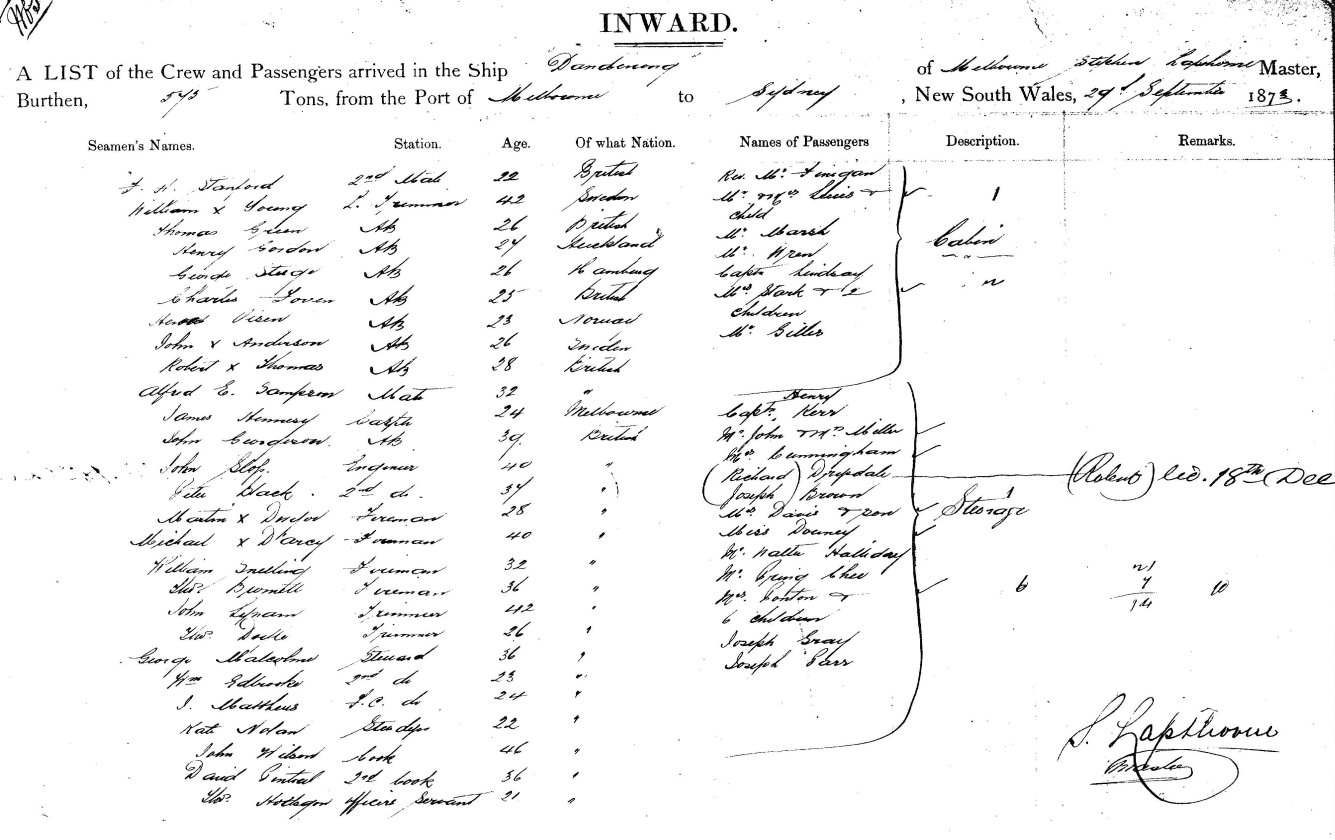 INWARD.
A LIST of the Crew and Passengers arrived in the Ship "Dandenong" of Melbourne Stephen Lapthorne Master,
Burthen, 575 Tons, from the Port of Melbourne to Sydney, New South Wales, 29th September 1873.
Seamen's Names. Station. Age. Of what Nation. Names of Passengers Description. Remarks.
F. H. Stanford 2nd Mate 22 British Rev. Mr. Finigan
William x Young L. Trimmer 42 Sweden Mr. & Mrs. & 1
Thomas Green AB 26 British child
Henry Gordon AB 27 Auckland Mr. Marsh Cabin
George AB 26 Hamburg Mr. Wren
Charles AB 25 British Captn Lindsay
AB 23 Mrs Stark & 2
John x Anderson AB 26 Sweden children
Robert x Thomas AB 28 British Mr. Giller
Alfred E. Sampson Mate 32 "
James Hennesy 24 Melbourne Captn. Henry Kerr
John Georgeson AB 39 British Mr. John & Mrs. Miller
John Slop. Engineer 40 " Mrs Cunningham
Peter Hack. 2nd do. 37 " (Richard) Drysdale (Robert) 18th Dec
Martin x Fireman 28 " Joseph) Brown
Michael x D'arcy Fireman 40 " Mrs Davis & son Steerage
William Snelling Fireman 32 " Miss Downey
Thos. Burnett Fireman 36 " Mr. Walter Halliday
John Lynam Trimmer 42 " Mr. Chee 6 10
Thos. Trimmer 26 " Mrs. &
George Malcolme Steward 36 " 6 children
Wm Edbrooke 2nd do 23 " Joseph Gray
J. Matthews F.C. do 24 " Joseph
Kate Nolan Stewdess 22 "
John Wilson Cook 46 " S. Lapthorne
David 2nd Cook 36 " Master
Thos. Hodgson officers Servant 21 "